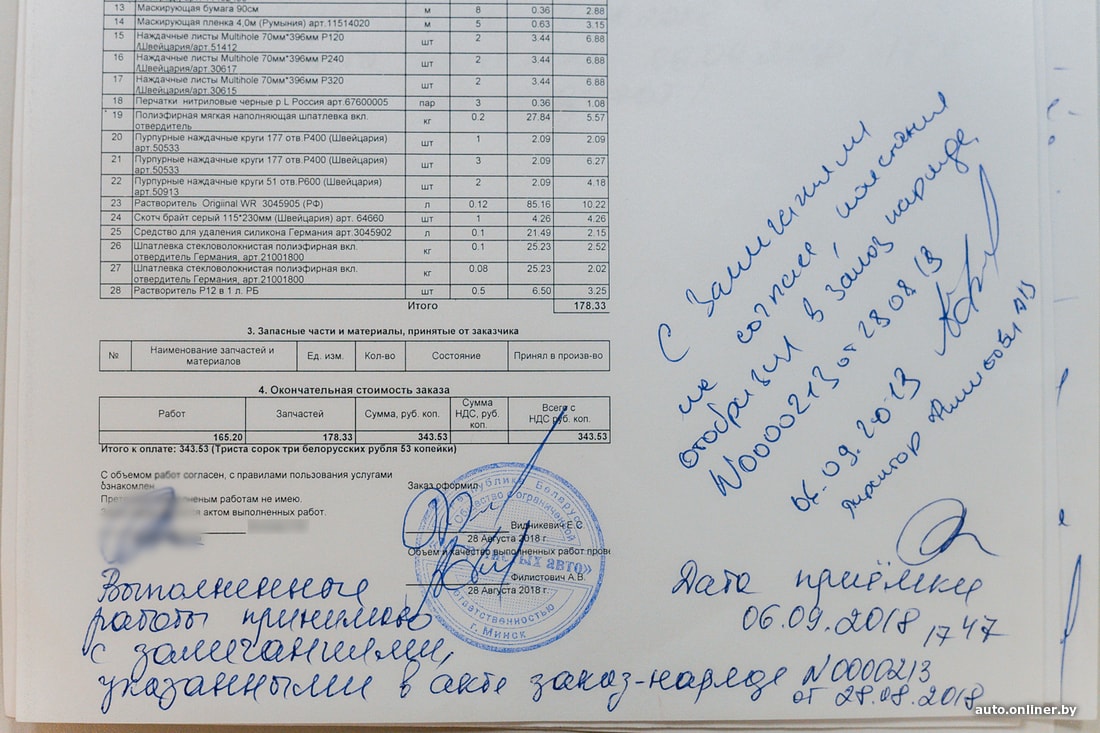 13 Маскирующая бумага 90см м 8 0.36 2.88
14 Маскирующая пленка 4,0м (Румыния) арт.11514020 м 5 0.63 3.15
15 Наждачные листы Multihole 70мм*396мм P120 шт 2 3.44 6.88
/Швейцария/арт.51412
16 Наждачные листы Multihole 70мм*396мм P240 шт 2 3.44 6.88
/Швейцария/арт.30617
17 Наждачные листы Multihole 70мм*396мм P320 шт 2 3.44 6.88
/Швейцария/арт.30615
18 Перчатки нитриловые черные р L Россия арт.67600005 пар 3 0.36 1.08
19 Полиэфирная мягкая наполняющая шпатлевка вкл. кг 0.2 27.84 5.57
отвердитель
20 Пурпурные наждачные круги 177 отв.P400 (Швейцария) шт 1 2.09 2.09
арт.50533
21 Пурпурные наждачные круги 177 отв.P400 (Швейцария) шт 3 2.09 6.27
арт.50533
22 Пурпурные наждачные круги 51 отв.P600 (Швейцария) шт 2 2.09 4.18
арт.50913
23 Растворитель Origiinal WR 3045905 (РФ) л 0.12 85.16 10.22
24 Скотч брайт серый 115*230мм (Швейцария) арт. 64660 шт 1 4.26 4.26
25 Средство для удаления силикона Германия арт.3045902 л 0.1 21.49 2.15
26 Шпатлевка стекловолокнистая полиэфирная вкл. кг 0.1 25.23 2.52
отвердитель Германия, арт.21001800
27 Шпатлевка стекловолокнистая полиэфирная вкл. кг 0.08 25.23 2.02
отвердитель Германия, арт.21001800
28 Растворитель Р12 в 1 л. РБ шт 0.5 6.50 3.25
Итого 178.33
3. Запасные части и материалы, принятые от заказчика
№ Наименование запчастей и материалов Ед. изм. Кол-во Состояние Принял в произв-во
4. Окончательная стоимость заказа
Работ Запчастей Сумма, руб. коп. Сумма НДС, руб. коп. Всего с НДС руб. коп.
165.20 178.33 343.53 343.53
Итого к оплате: 343.53 (Триста сорок три белорусских рубля 53 копейки)
С объемом работ согласен, с правилами пользования услугами
ознакомлен
выполненым работам не имею.
актом выполненных работ.
Заказ оформил
Видникевич Е.С
28 Августа 2018 г.
Объем и качество выполненных работ пров
Филистович А.В.
28 Августа 2018 г.
Республика Беларусь
Общество с ограниченной
авто»
ответственностью
г. Минск
С замечаниями
не согласен, пояснения
отобразил в заказ наряде
N0000213 от 28 08 18
06.09.2018
директор Филистович АВ
Дата приёмки
06.09.2018 17 47
Выполненные
работы принимаю
с замечаниями,
указанными в акте заказ-наряде N0000213
от 28.08.2018
auto.onliner.by